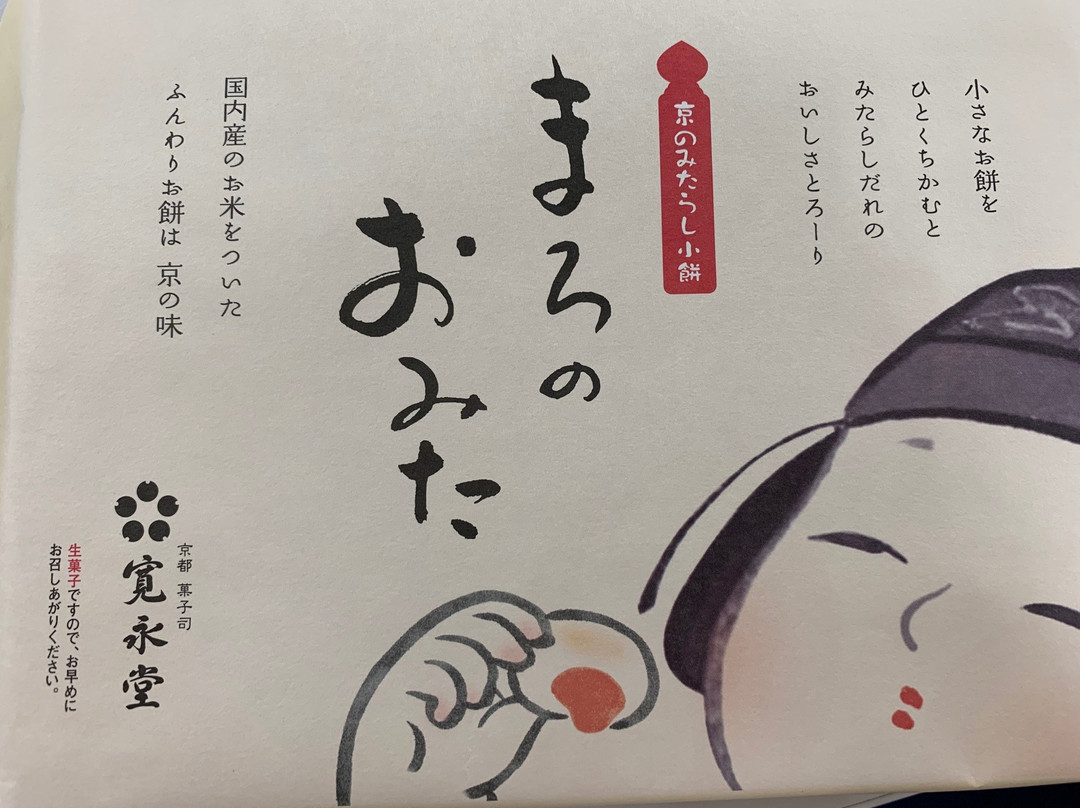 小さなお餅を
ひとくちかむと
みたらしだれの
おいしさとろーり
京のみたらし小餅
まろの
おみた
国内産のお米をついた
ふんわりお餅は 京の味
京都 菓子司
寛永堂
生菓子ですので、お早めに
お召しあがりください。